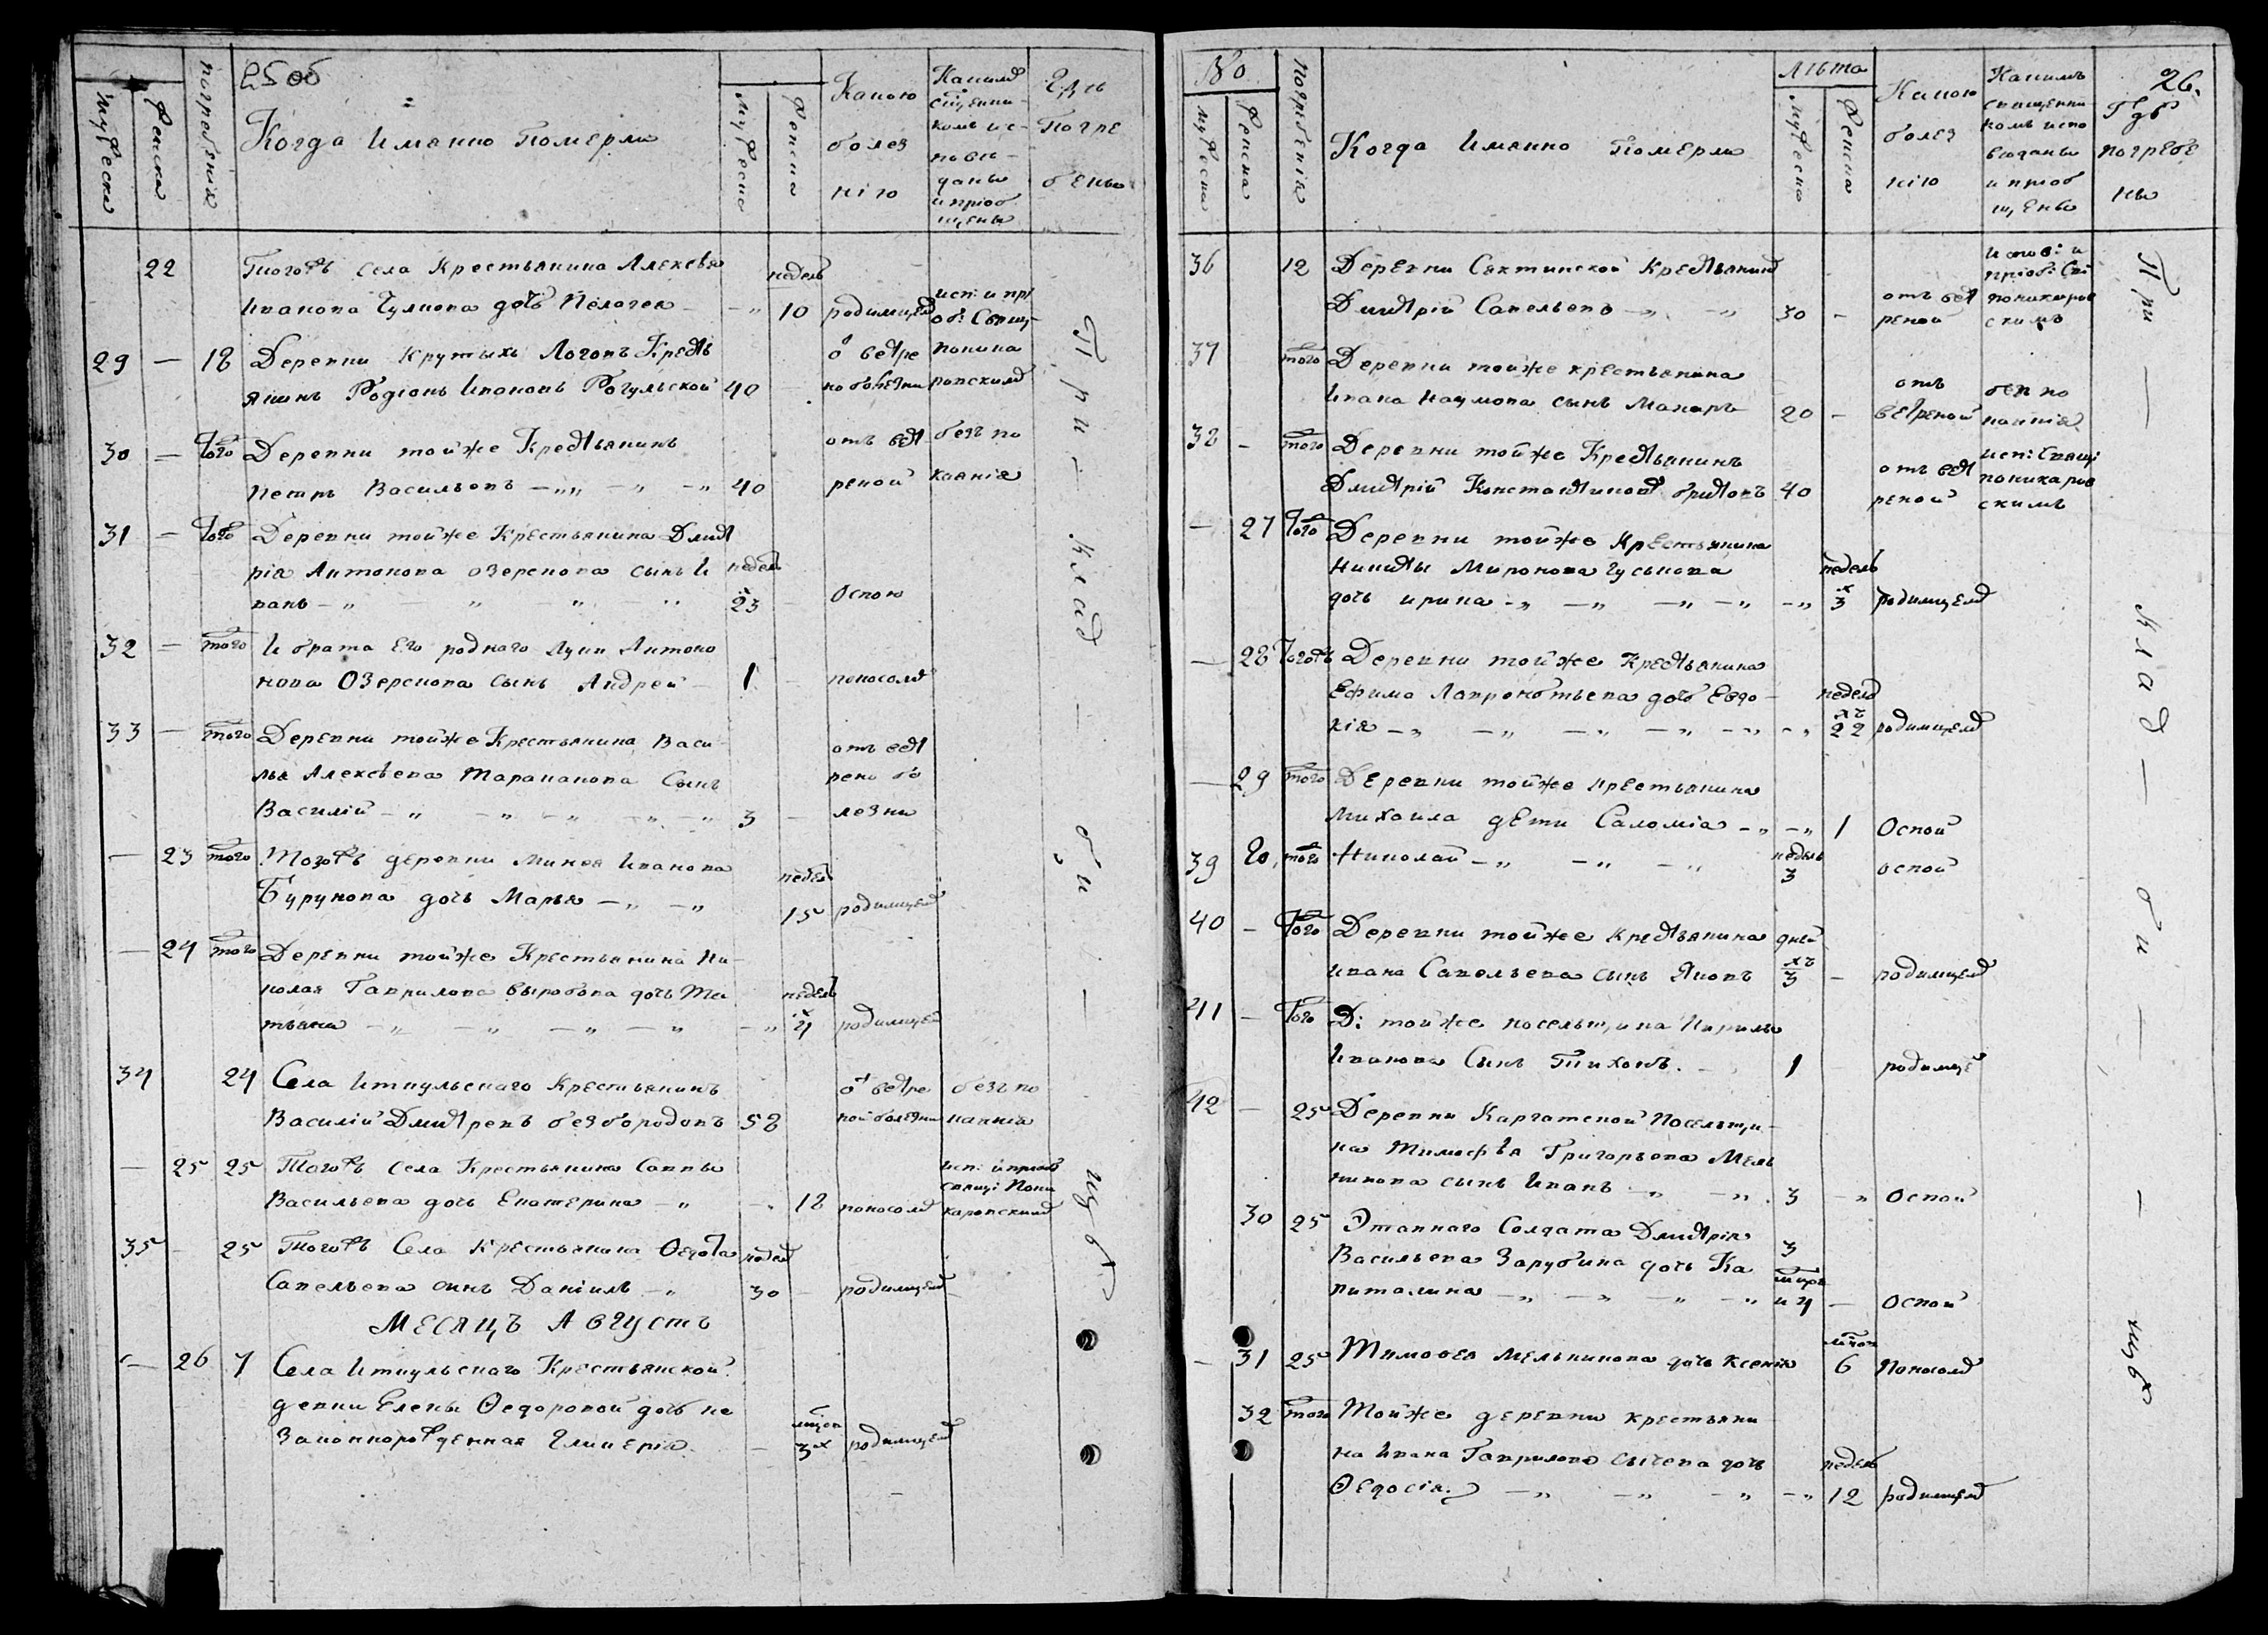 25 об
Мужеска
Женска
погребенія
Когда Имянно Померли
Мужеска
Женска
Какою
болез
нію
Какимъ
сщенни
комъ ис-
пове-
даны
и пріоб
щены
Гдѣ
Погре
бены
22 Тогожъ села Крестьянина Алексѣя
недель
Иванова дочь Пелогея 10 родимцемъ
исп: и прі
об: Свящ
29 — 18 Деревни Крутыхъ Логовъ Кресть
янинъ Родіонъ Ивановъ Рогульской 40
о ветре
но болѣзни
30 — Того Деревни тойже Крестьянинъ
Петръ Васильевъ 40
отъ вет
реной
безъ по
каянія
31 — Того Деревни тойже Крестьянина Дмит
рія Антонова Озерскова сынъ И
ванъ недель 23 Оспою
32 — того И брата Его роднаго Луки Антоно
нова Озерскова сынъ Андрей 1 поносомъ
33 — того Деревни тойже Крестьянина Васи
лья Алексѣева Тараканова Сынъ
Василій 3
отъ вет
рено бо
лезни
— 23 того Тогожъ деревни Минея Иванова
Бурукова дочь Марья недель 15 родимцемъ
— 24 того Деревни тойже Крестьянина Ни
колая Гаврилова Выробова дочь Та
тьяна недель 4 родимцем
34 24 Села Иткульскаго Крестьянинъ
Василій Дмитревъ безбородовъ 58
о ветре
ной болезни
безъ по
каянія
— 25 25 Тогожъ Села Крестьянина Саввы
Васильева дочь Екатерина 18 поносомъ
исп: и пріоб
свящ: Пони
каровскимъ
35 25 Тогожъ Села Крестьянина Ѳедота недел
Савельева синъ Даніилъ 30 родимцемъ
МЕСЯЦЪ АВГУСТЪ
— 26 7 Села Иткульскаго Крестьянской
девки Елены Ѳедоровой дочь не
Законнорожденная Гликерія 3х родимцемъ
При — клад — би щѣ
№
Мужеска
Женска
погрѣбенія
Когда Имянно Померли
Лѣта
Мужеска
Женска
Какою
болез
нію
Какимъ
священни
комъ испо
веданы
и пріоб
щены
26.
Гдѣ
погребе
ны
36 12 Деревни Сектинской Крестьянинъ
Дмитрій Савельевъ 30
отъ вет
реной
Испов: и
пріоб: Свя
поникаров
скимъ
37 того Деревни тойже крестьянина
Ивана Наумова сынъ Макаръ 20
отъ
ветреной
без по
каянія
38 — того Деревни тойже Крестьянинъ
Дмитрій Константиновъ бритовъ 40
отъ вет
реной
исп: Свящ:
поникаров
скимъ
— 27 Того Деревни тойже Крестьянина
Никиты Миронова Гуськова недель
дочь ирина 3 родимцемъ
— 28 Тогожъ Деревни тойже Крестьянина
Ефима Лаврентьева дочь Евдо недель
кія 22 родимцемъ
— 29 того Деревни тойже крестьянина
Михаила дети Саломіа 1 Оспой
39 20 того Николай недель 3 оспой
40 — Того Деревни тойже крестьянина дней
Ивана Савельева сынъ Яковъ 3 — родимцемъ
41 — Того Д: тойже посельщика Кирилы
Иванова Сынъ Тихонъ. 1 родимце
42 — 25 Деревни Каргатской Посельщи
ка Тимофѣя Григорьева Мель
никова сынъ Иванъ 3 Оспой
30 25 Этапнаго Солдата Дмитрія
Васильева Зарубина дочь Ка 3
питалина и 4 — Оспой
— 31 25 Тимофея Мельникова дочь Ксенія 6 Поносомъ
32 того Тойже деревни крестьяни
на Ивана Гаврилова Сычева дочь недель
Ѳедосія. 12 родимцемъ
При — клад — би — щѣ